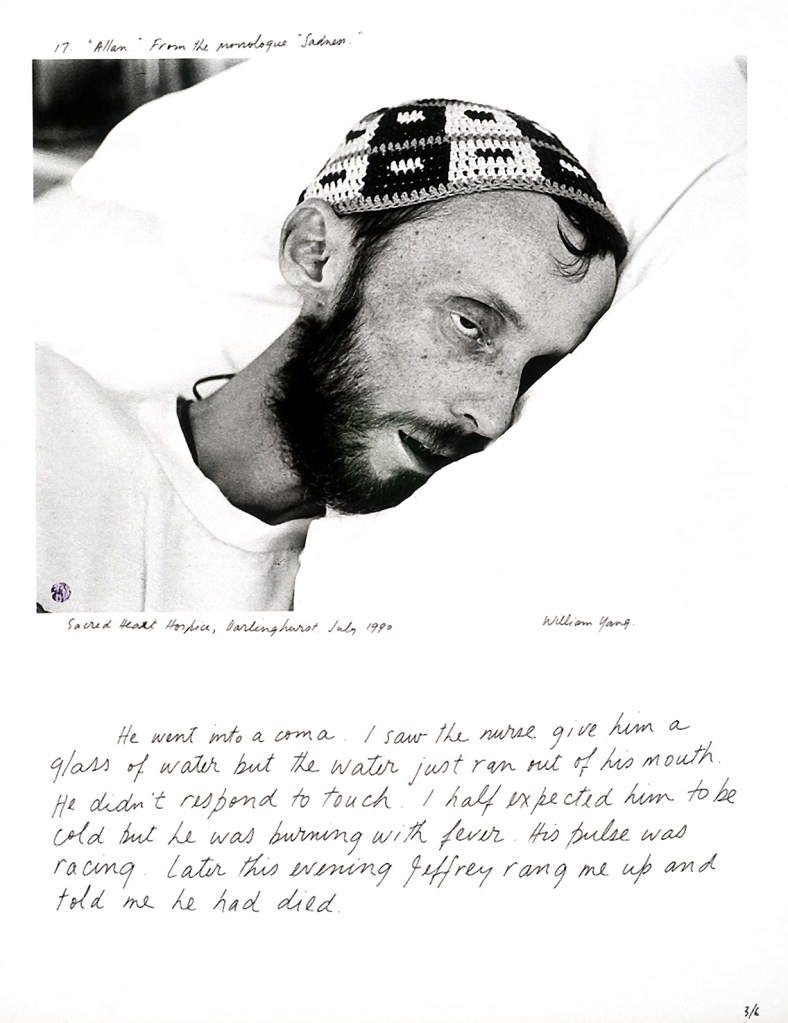 17. "Allan." From the monologue "Sadness."
Sacred Heart Hospice, Darlinghurst. July 1990
William Yang.
He went into a coma. I saw the nurse give him a
glass of water but the water just ran out of his mouth.
He didn't respond to touch. I half expected him to be
cold but he was burning with fever. His pulse was
racing. Later this evening Jeffrey rang me up and
told me he had died.
3/6